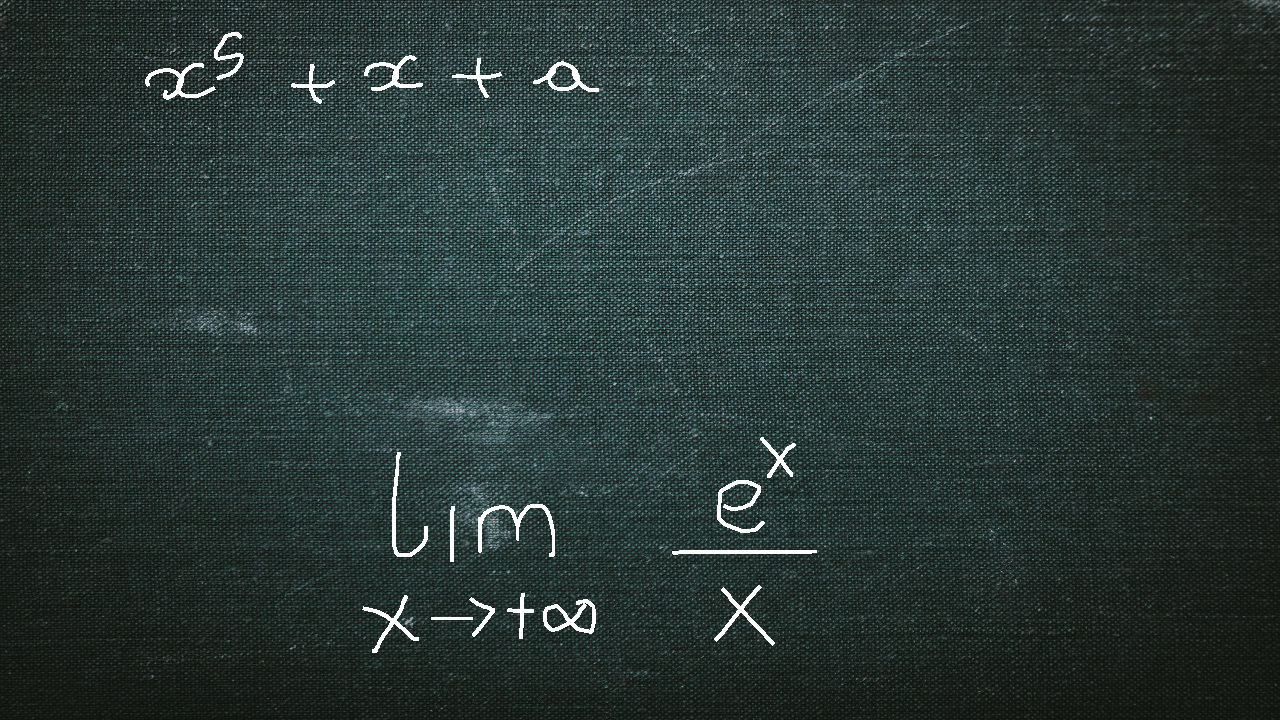 x⁵ + x + a
lim eˣ
x→+∞ x